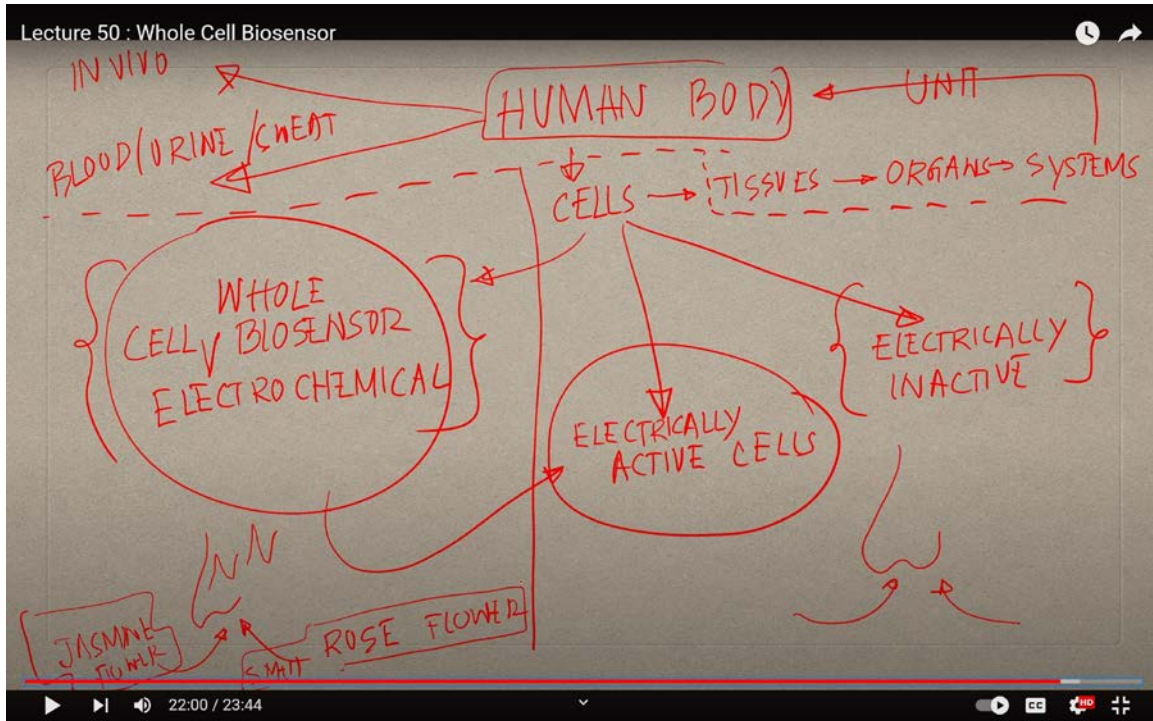 Lecture 50 : Whole Cell Biosensor
IN VIVO
HUMAN BODY
UNIT
BLOOD/URINE/SWEAT
CELLS → TISSUES → ORGANS → SYSTEMS
WHOLE
CELL BIOSENSOR
ELECTROCHEMICAL
ELECTRICALLY
INACTIVE
ELECTRICALLY
ACTIVE CELLS
JASMINE
FLOWER
ROSE FLOWER
22:00 / 23:44
CC
HD